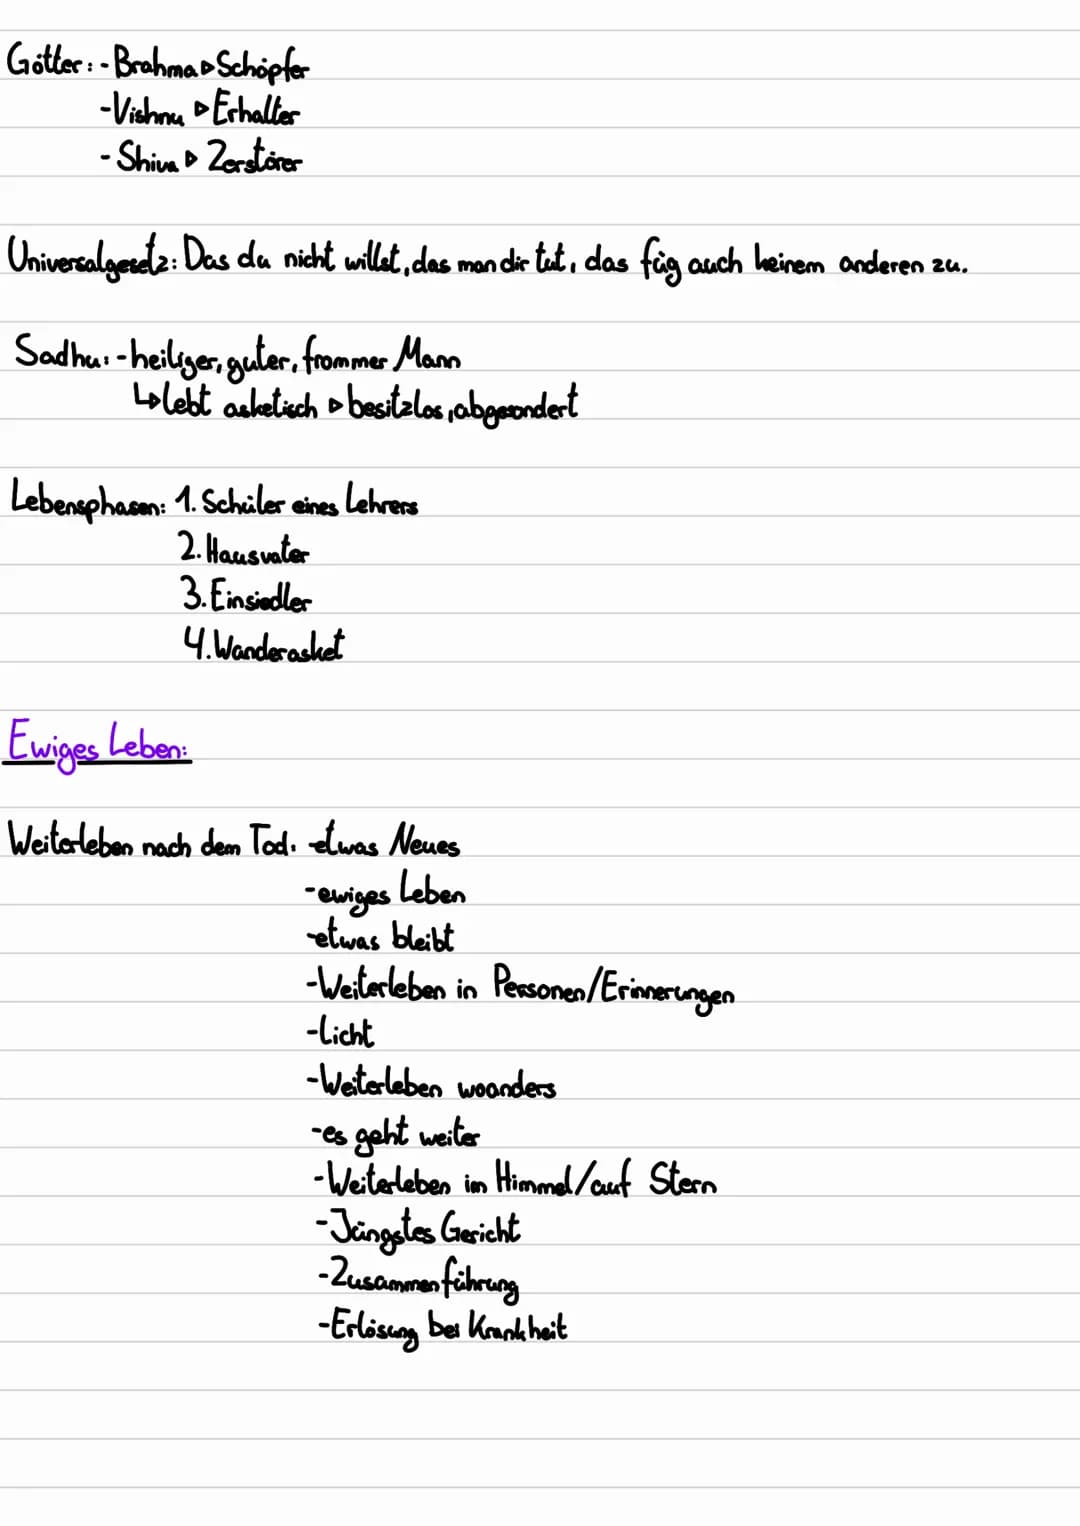 Götter: - Brahma ▹ Schöpfer
- Vishnu ▹ Erhalter
- Shiva ▹ Zerstörer
Universalgesetz: Das du nicht willst, das man dir tut, das füg auch keinem anderen zu.
Sadhu: - heiliger, guter, frommer Mann
↳ lebt asketisch ▹ besitzlos, abgesondert
Lebensphasen: 1. Schüler eines Lehrers
2. Hausvater
3. Einsiedler
4. Wanderasket
Ewiges Leben:
Weiterleben nach dem Tod: -etwas Neues
-ewiges Leben
-etwas bleibt
-Weiterleben in Personen/Erinnerungen
-Licht
-Weiterleben woanders
-es geht weiter
-Weiterleben im Himmel/auf Stern
-Jüngstes Gericht
-Zusammenführung
-Erlösung bei Krankheit